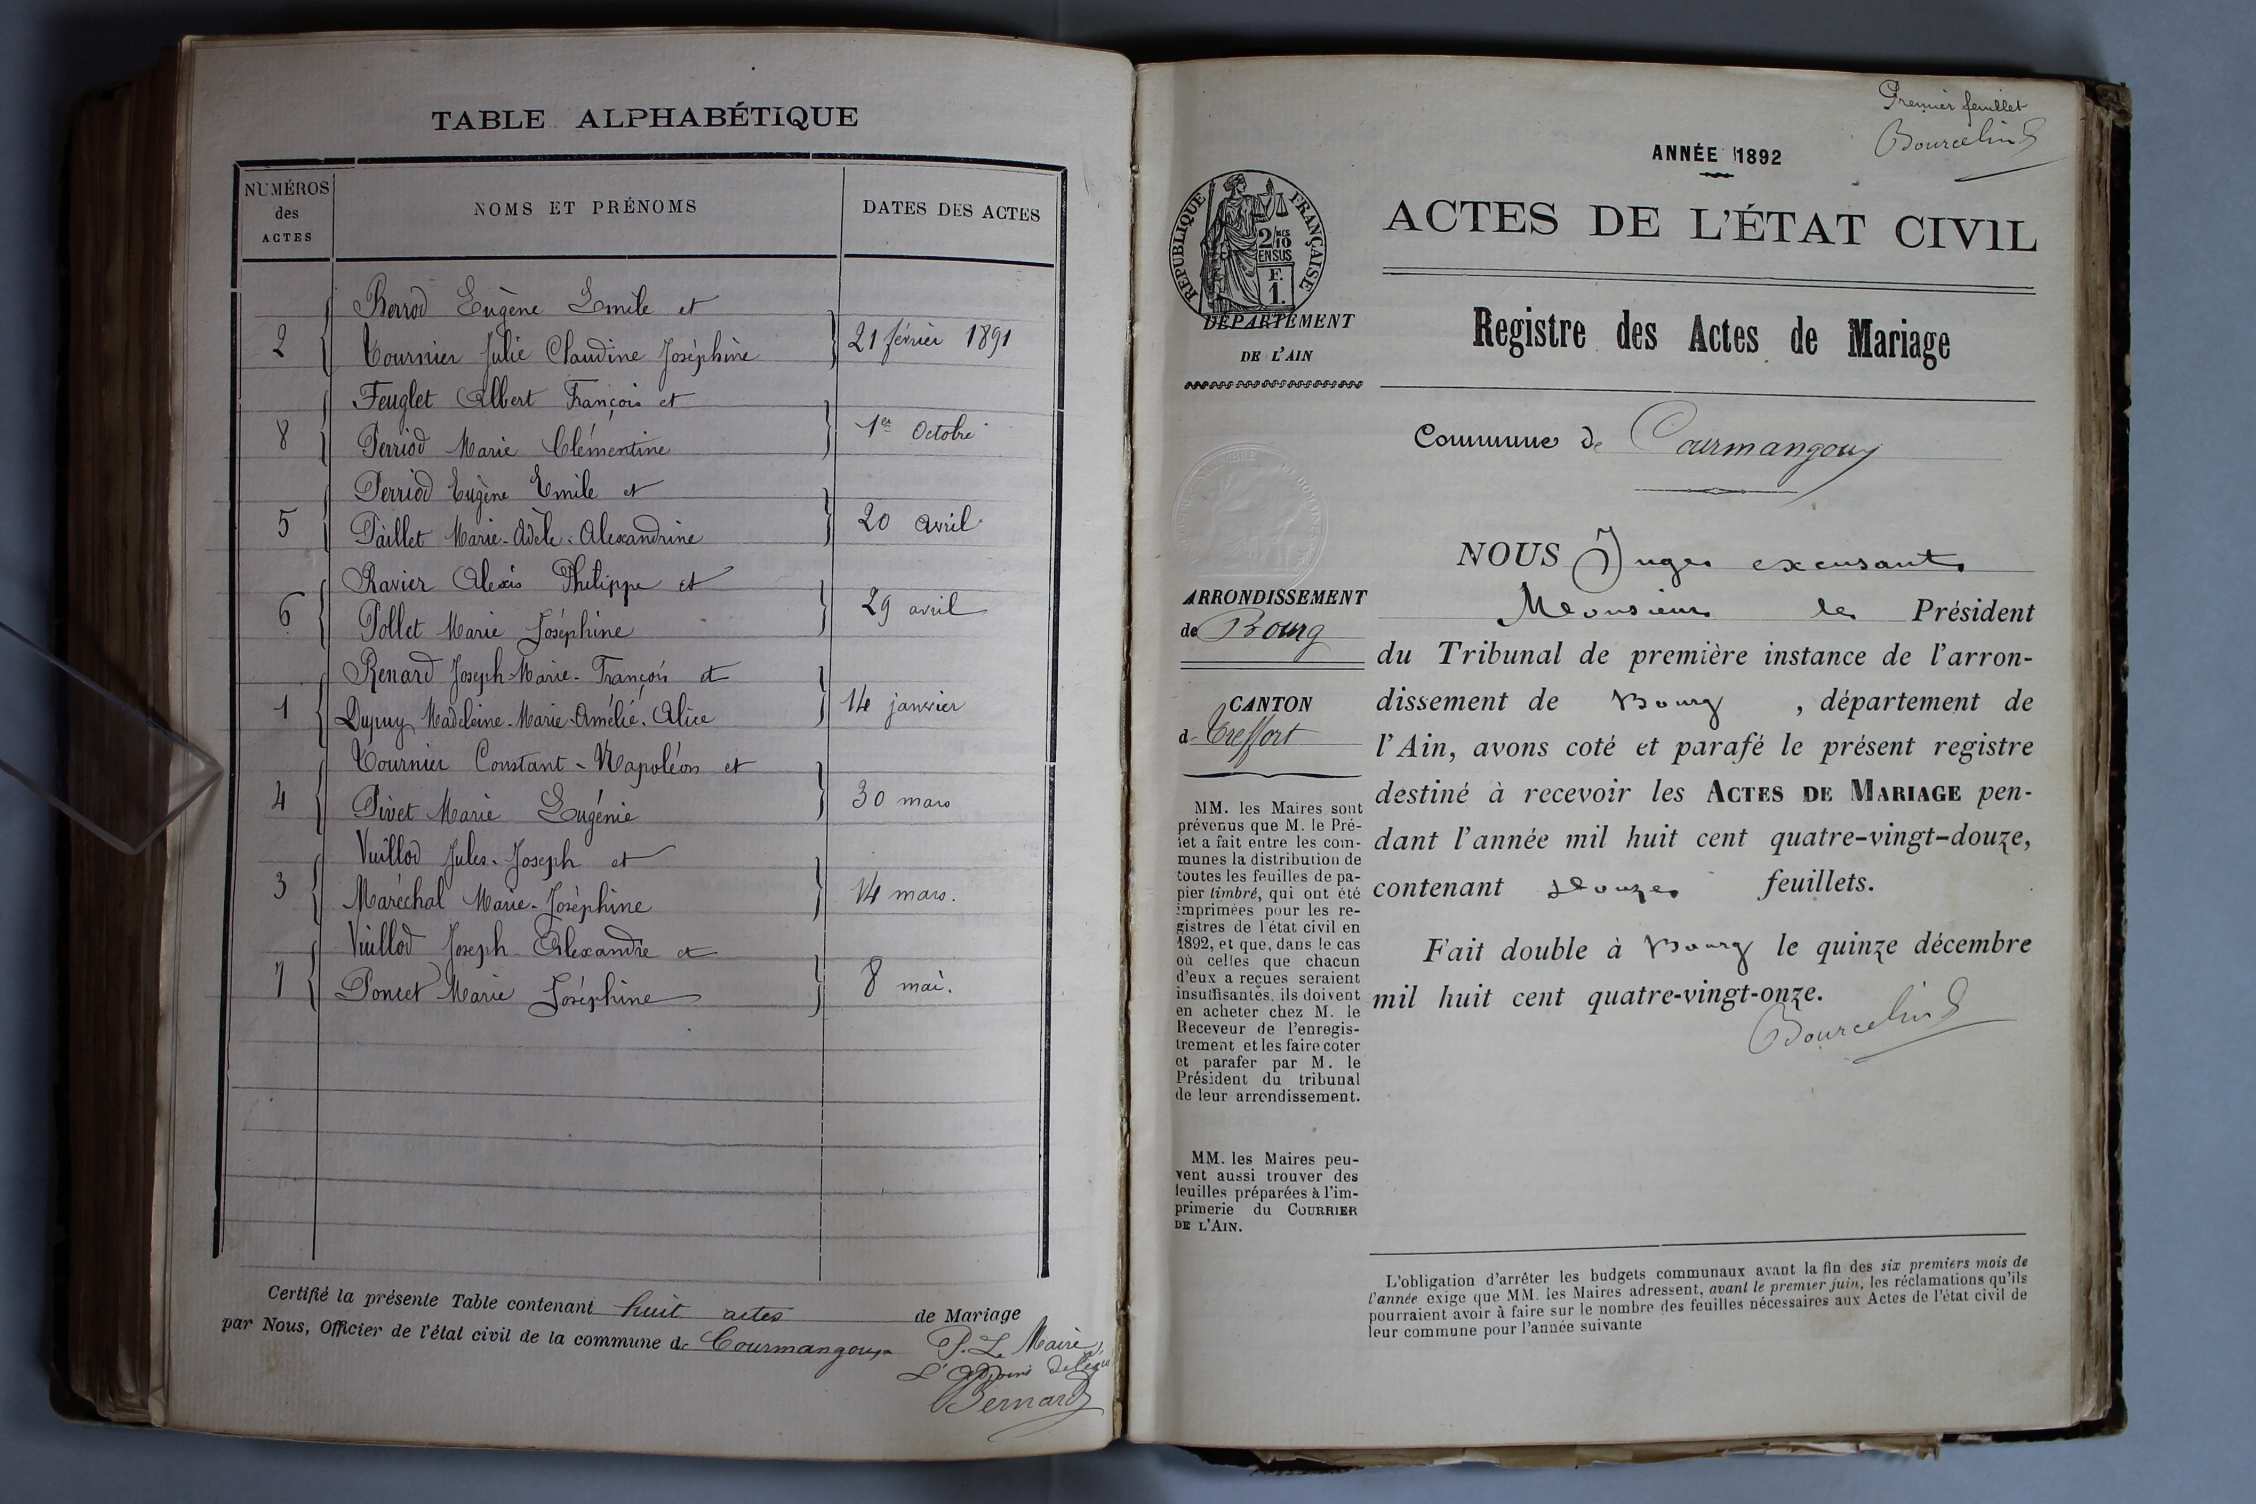 TABLE ALPHABÉTIQUE
NUMÉROS des ACTES
NOMS ET PRÉNOMS
DATES DES ACTES
Berrod Eugène Emile et
2 Tournier Julie Claudine Joséphine 21 février 1891
Feuglet Albert François et
8 Perriod Marie Clémentine 1er Octobre
Perriod Eugène Emile et
5 Paillet Marie-Adèle-Alexandrine 20 avril
Ravier Alexis Philippe et
6 Pollet Marie Joséphine 29 avril
Renard Joseph-Marie-François et
1 Dupuy Madeleine-Marie-Amélie-Alice 14 janvier
Tournier Constant-Napoléon et
4 Pivet Marie Eugénie 30 mars
Vuillod Jules-Joseph et
3 Maréchal Marie-Joséphine 14 mars.
Vuillod Joseph Alexandre et
7 Poncet Marie Joséphine 8 mai.
Certifié la présente Table contenant huit actes de Mariage
par Nous, Officier de l'état civil de la commune de Courmangoux
P. Le Maire,
L'Adjoint délégué
Bernard
Premier feuillet
Bourcelin
ANNÉE 1892
RÉPUBLIQUE FRANÇAISE
2/10 EN SUS
F. 1.
ACTES DE L'ÉTAT CIVIL
Registre des Actes de Mariage
DÉPARTEMENT
DE L'AIN
Commune de Courmangoux
ARRONDISSEMENT
de Bourg
CANTON
de Treffort
MM. les Maires sont
prévenus que M. le Pré-
fet a fait entre les com-
munes la distribution de
toutes les feuilles de pa-
pier timbré, qui ont été
imprimées pour les re-
gistres de l'état civil en
1892, et que, dans le cas
où celles que chacun
d'eux a reçues seraient
insuffisantes, ils doivent
en acheter chez M. le
Receveur de l'enregis-
trement et les faire coter
et parafer par M. le
Président du tribunal
de leur arrondissement.
MM. les Maires peu-
vent aussi trouver des
feuilles préparées à l'im-
primerie du COURRIER
DE L'AIN.
NOUS Juge excusant
Monsieur le Président
du Tribunal de première instance de l'arron-
dissement de Bourg, département de
l'Ain, avons coté et parafé le présent registre
destiné à recevoir les ACTES DE MARIAGE pen-
dant l'année mil huit cent quatre-vingt-douze,
contenant douze feuillets.
Fait double à Bourg le quinze décembre
mil huit cent quatre-vingt-onze.
Bourcelin
L'obligation d'arrêter les budgets communaux avant la fin des six premiers mois de
l'année exige que MM. les Maires adressent, avant le premier juin, les réclamations qu'ils
pourraient avoir à faire sur le nombre des feuilles nécessaires aux Actes de l'état civil de
leur commune pour l'année suivante